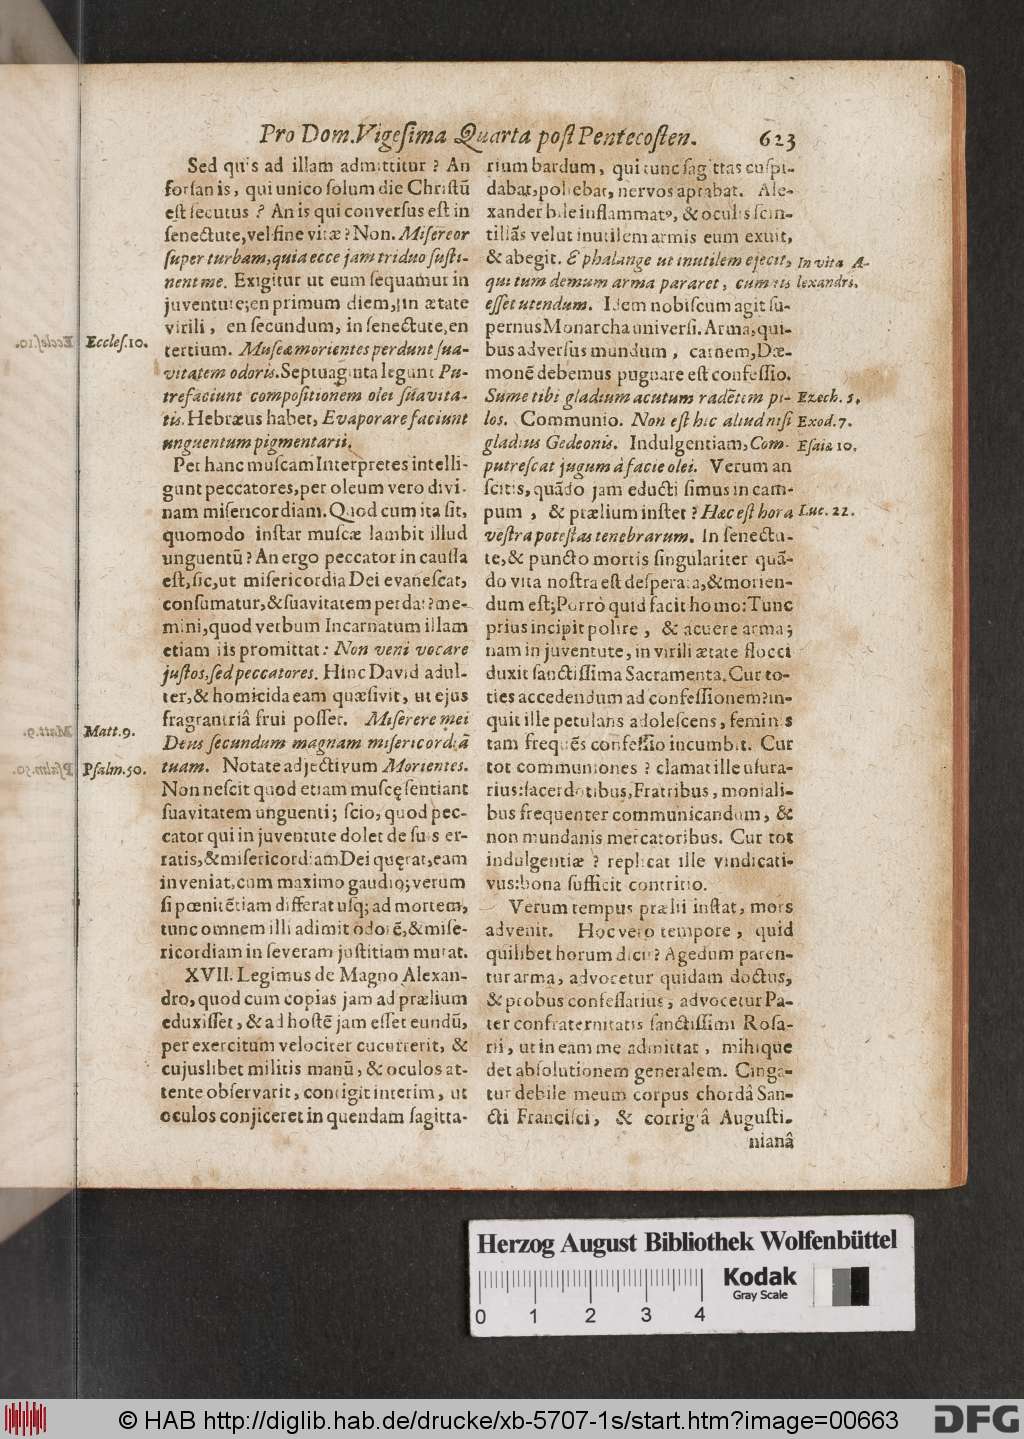 Pro Dom. Vigesima Quarta post Pentecosten. 623
Sed quis ad illam admittitur ? An
forsan is, qui unico solum die Christū
est secutus ? An is qui conversus est in
senectute, vel fine vitæ ? Non. Misereor
super turbam, quia ecce jam triduo susti-
nent me. Exigitur ut eum sequamur in
juventute; en primum diem, in ætate
virili, en secundum, in senectute, en
tertium. Muscæ morientes perdunt sua-
vitatem odoris. Septuaginta legunt Pu-
trefaciunt compositionem olei suavita-
tis. Hebræus habet, Evaporare faciunt
unguentum pigmentarii.
Eccles. 10.
Per hanc muscam Interpretes intelli-
gunt peccatores, per oleum vero divi-
nam misericordiam. Quod cum ita sit,
quomodo instar muscæ lambit illud
unguentū ? An ergo peccator in caussa
est, sic, ut misericordia Dei evanescat,
consumatur, & suavitatem perdat ? me-
mini, quod verbum Incarnatum illam
etiam iis promittat : Non veni vocare
justos, sed peccatores. Hinc David adul-
ter, & homicida eam quæsivit, ut ejus
fragrantriâ frui posset. Miserere mei
Deus secundum magnam misericordiā
tuam. Notate adjectivum Morientes.
Matt. 9.
Psalm. 50.
Non nescit quod etiam muscę sentiant
suavitatem unguenti; scio, quod pec-
cator qui in juventute dolet de suis er-
ratis, & misericordiam Dei quęrat, eam
inveniat, cum maximo gaudio; verum
si pœnitētiam differat usq; ad mortem,
tunc omnem illi adimit odorē, & mise-
ricordiam in severam justitiam mutat.
XVII. Legimus de Magno Alexan-
dro, quod cum copias jam ad prælium
eduxisset, & ad hostē jam esset eundū,
per exercitum velociter cucurrerit, &
cujuslibet militis manū, & oculos at-
tente observarit, contigit interim, ut
oculos conjiceret in quendam sagitta-
rium bardum, qui tunc sagittas cuspi-
dabat, poliebat, nervos aptabat. Ale-
xander bile inflammatꝰ, & oculis scin-
tillās velut inutilem armis eum exuit,
& abegit. E phalange ut inutilem ejecit,
qui tum demum arma pararet, cum iis
esset utendum. Idem nobiscum agit su-
In vita A-
lexandri.
pernus Monarcha universi. Arma, qui-
bus adversus mundum, carnem, Dæ-
monē debemus pugnare est confessio.
Sume tibi gladium acutum radētem pi-
los. Communio. Non est hic aliud nisi
gladius Gedeonis. Indulgentiam, Com-
putrescat jugum à facie olei. Verum an
Ezech. 5.
Exod. 7.
Esaiæ 10.
scitis, quādo jam educti simus in cam-
pum, & prælium instet ? Hæc est hora
vestra potestas tenebrarum. In senectu-
Luc. 22.
te, & puncto mortis singulariter quā-
do vita nostra est desperata, & morien-
dum est; Porrò quid facit homo : Tunc
prius incipit polire, & acuere arma;
nam in juventute, in virili ætate flocci
duxit sanctissima Sacramenta. Cur to-
ties accedendum ad confessionem ? in-
quit ille petulans adolescens, feminis
tam frequēs confessio incumbit. Cur
tot communiones ? clamat ille usura-
rius : sacerdotibus, Fratribus, moniali-
bus frequenter communicandum, &
non mundanis mercatoribus. Cur tot
indulgentiæ ? replicat ille vindicati-
vus : bona sufficit contritio.
Verum tempus prælii instat, mors
advenit. Hoc vero tempore, quid
quilibet horum dicit ? Agedum paren-
tur arma, advocetur quidam doctus,
& probus confessarius, advocetur Pa-
ter confraternitatis sanctissimi Rosa-
rii, ut in eam me admittat, mihique
det absolutionem generalem. Cinga-
tur debile meum corpus chordâ San-
cti Francisci, & corrigiâ Augusti-
nianâ
Herzog August Bibliothek Wolfenbüttel
Kodak
Gray Scale
0 1 2 3 4
© HAB http://diglib.hab.de/drucke/xb-5707-1s/start.htm?image=00663
DFG